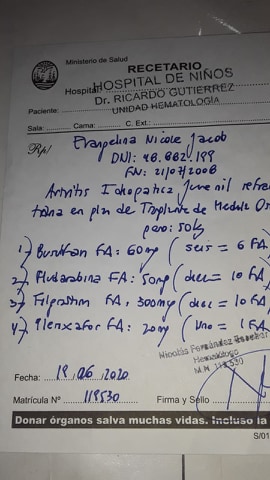 Ministerio de Salud
RECETARIO
Hospital:
HOSPITAL DE NIÑOS
Dr. RICARDO GUTIERREZ
Paciente:
UNIDAD HEMATOLOGÍA
Sala: Cama: C. Ext.:
Rp/ Evangelina Nicole Jacob
DNI: 48.882.199
FN: 21/07/2008
Artritis Idiopatica Juvenil refrac
taria en plan de Trasplante de Medula Os
peso: 50k
1) Busulfan FA: 60mg (seis = 6 FA
2) Fludarabina FA: 50mg (diez = 10 FA
3) Filgrastim FA: 300mg (diez = 10 FA
4) Plerixafor FA: 20mg (Uno = 1 FA
Nicolás Fernández
Hematólogo
M.N. 119530
Fecha: 19.06.2020
Matrícula Nº 119530 Firma y Sello
Donar órganos salva muchas vidas. Incluso la
S/01